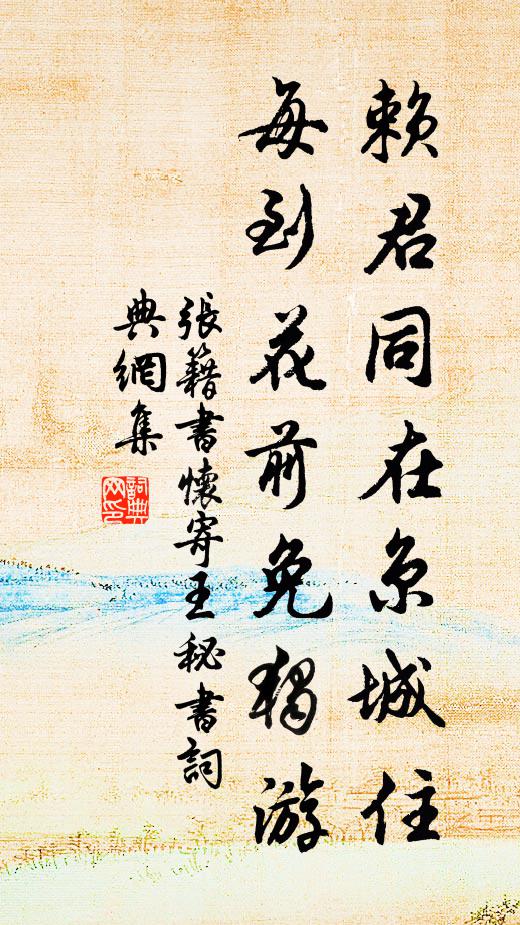 賴君同在京城住
每到花前免獨游
張籍書懷寄王秘書詞
典網集
詞典网印